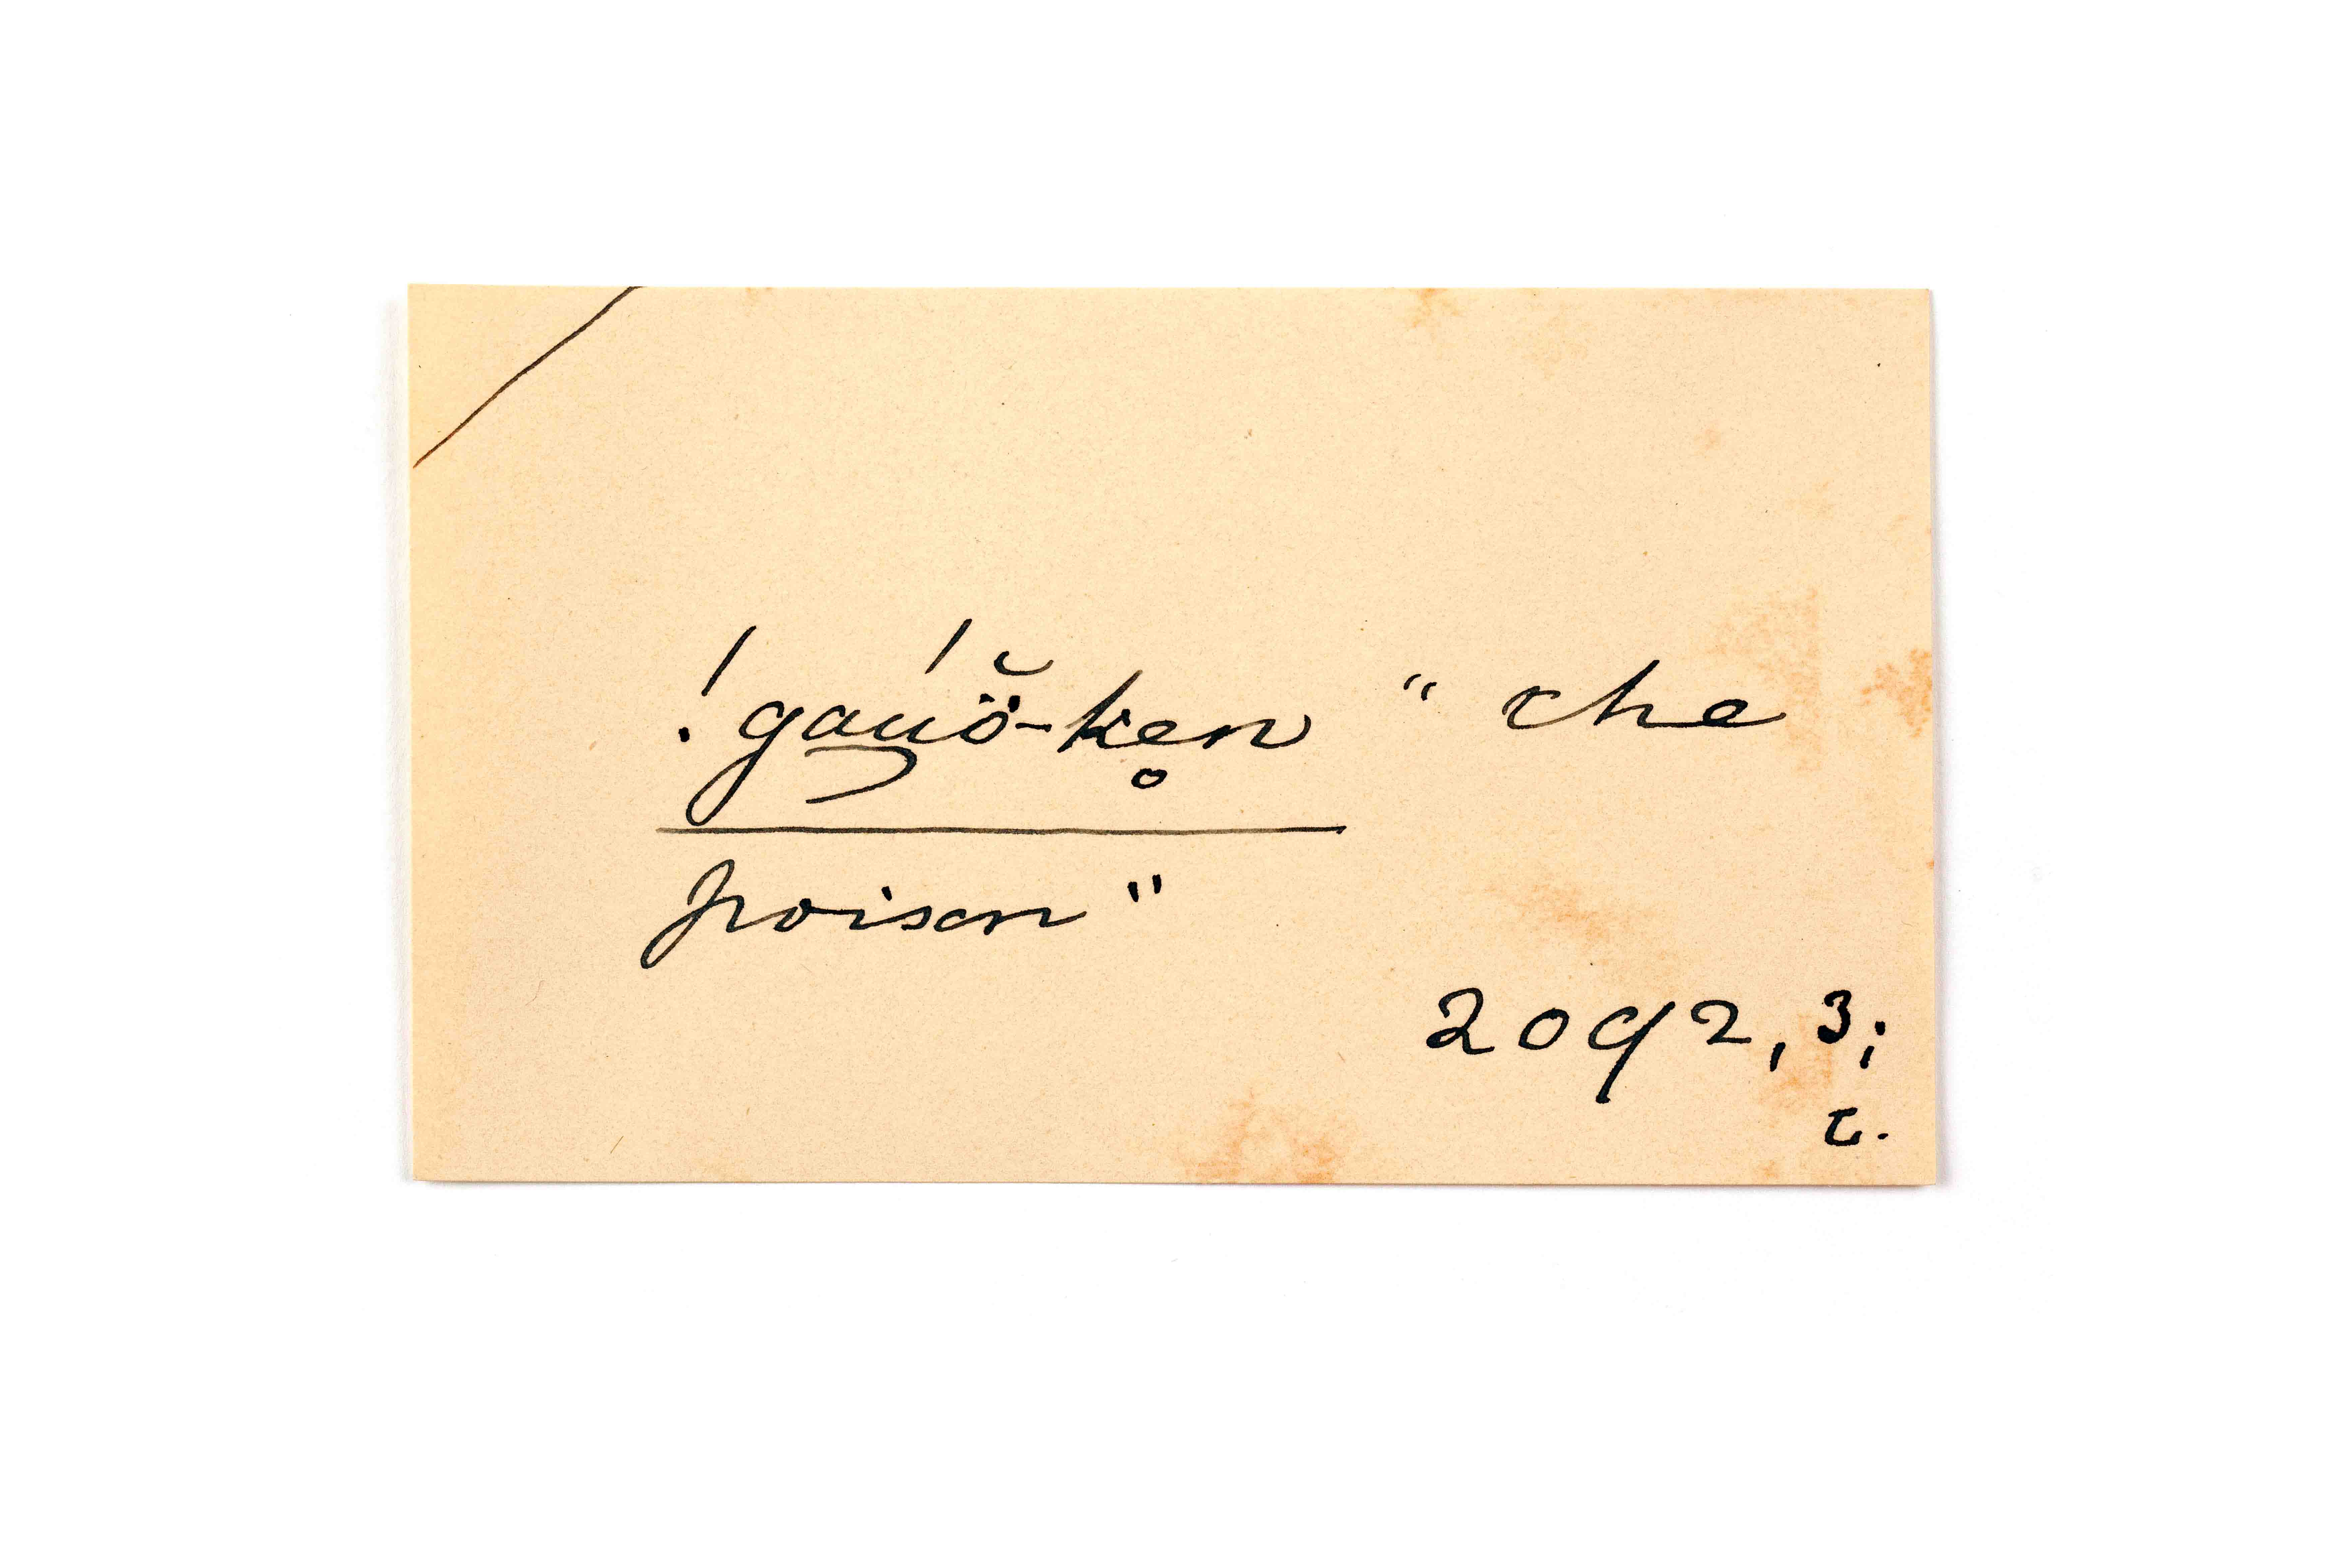 !gaúö̆-ken̥ " the
poison"
2092, 3;
L.